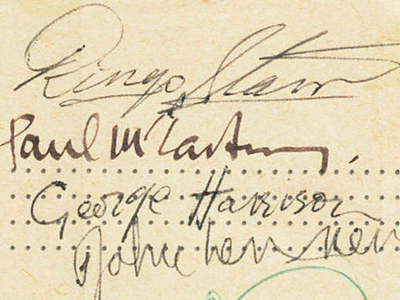 Ringo Starr
Paul McCartney
George Harrison
John Lennon